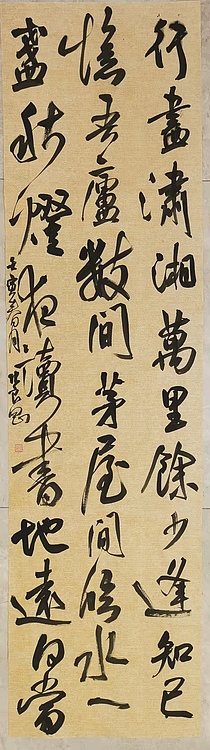 行盡瀟湘萬里餘少逢知己
憶吾廬數間茅屋間臨水一
盞秋燈夜讀書地遠何當
壬寅